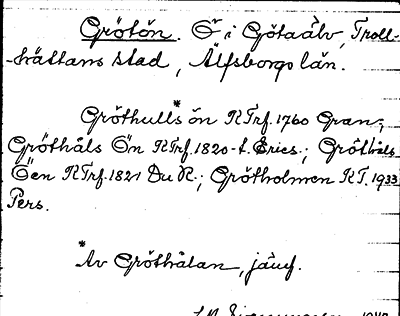 Grötön. Ö i Götaälv, Troll-
-hättans stad, Älfsborgs län.
Gröthulls*ön RTrf. 1760 Gran;
Gröthåls Ön RTrf. 1820-t. Erics.; Gröthåls
Öen RTrf. 1821 Du R.; Grötholmen RT. 1933
Pers.
*Av Gröthålan, jämf.